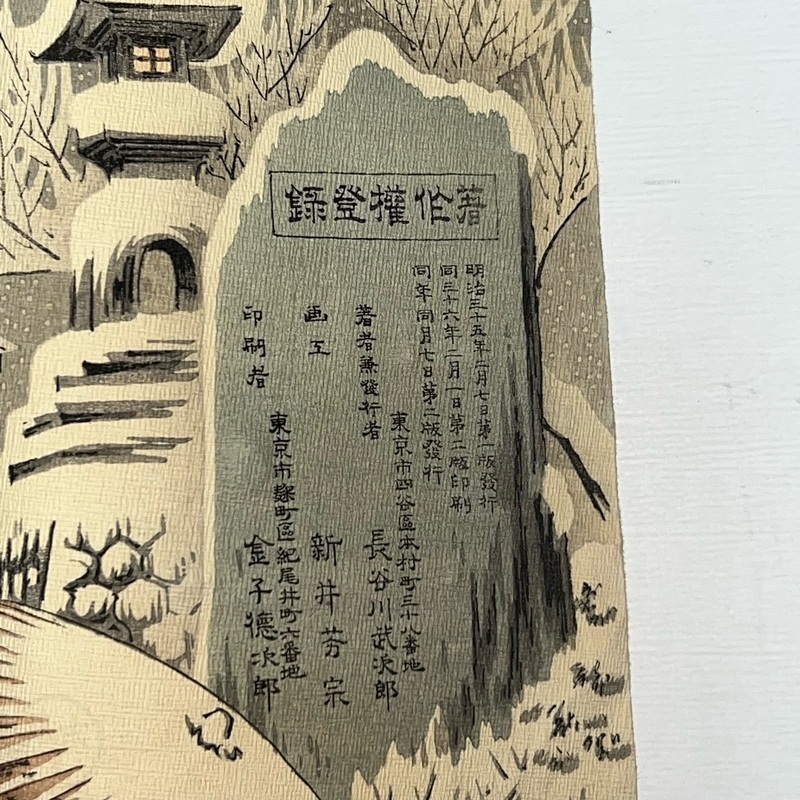 著作權登錄
明治三十五年二月七日第一版發行
同三十六年二月一日第二版印刷
同年同月七日第二版發行
東京市四谷區本村町三十八番地
著者兼發行者 長谷川武次郎
画工 新井芳宗
東京市麹町區紀尾井町六番地
印刷者 金子德次郎